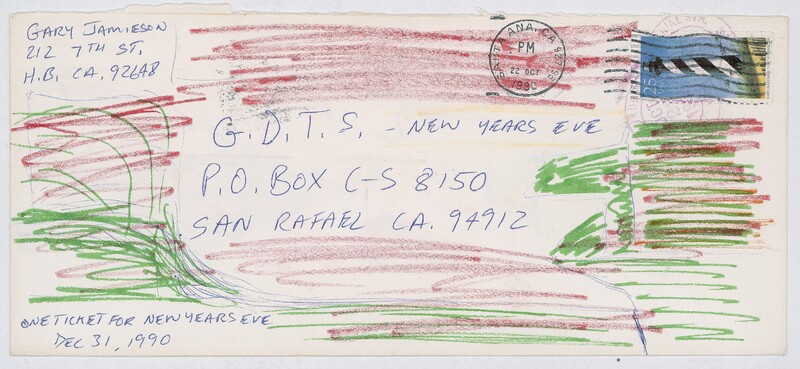 GARY JAMIESON
212 7TH ST.
H.B. CA. 92648
SANTA ANA, CA
PM
22 OCT
1990
25
G.D.T.S. - NEW YEARS EVE
P.O. BOX C-S 8150
SAN RAFAEL CA. 94912
ONE TICKET FOR NEW YEARS EVE
DEC 31, 1990